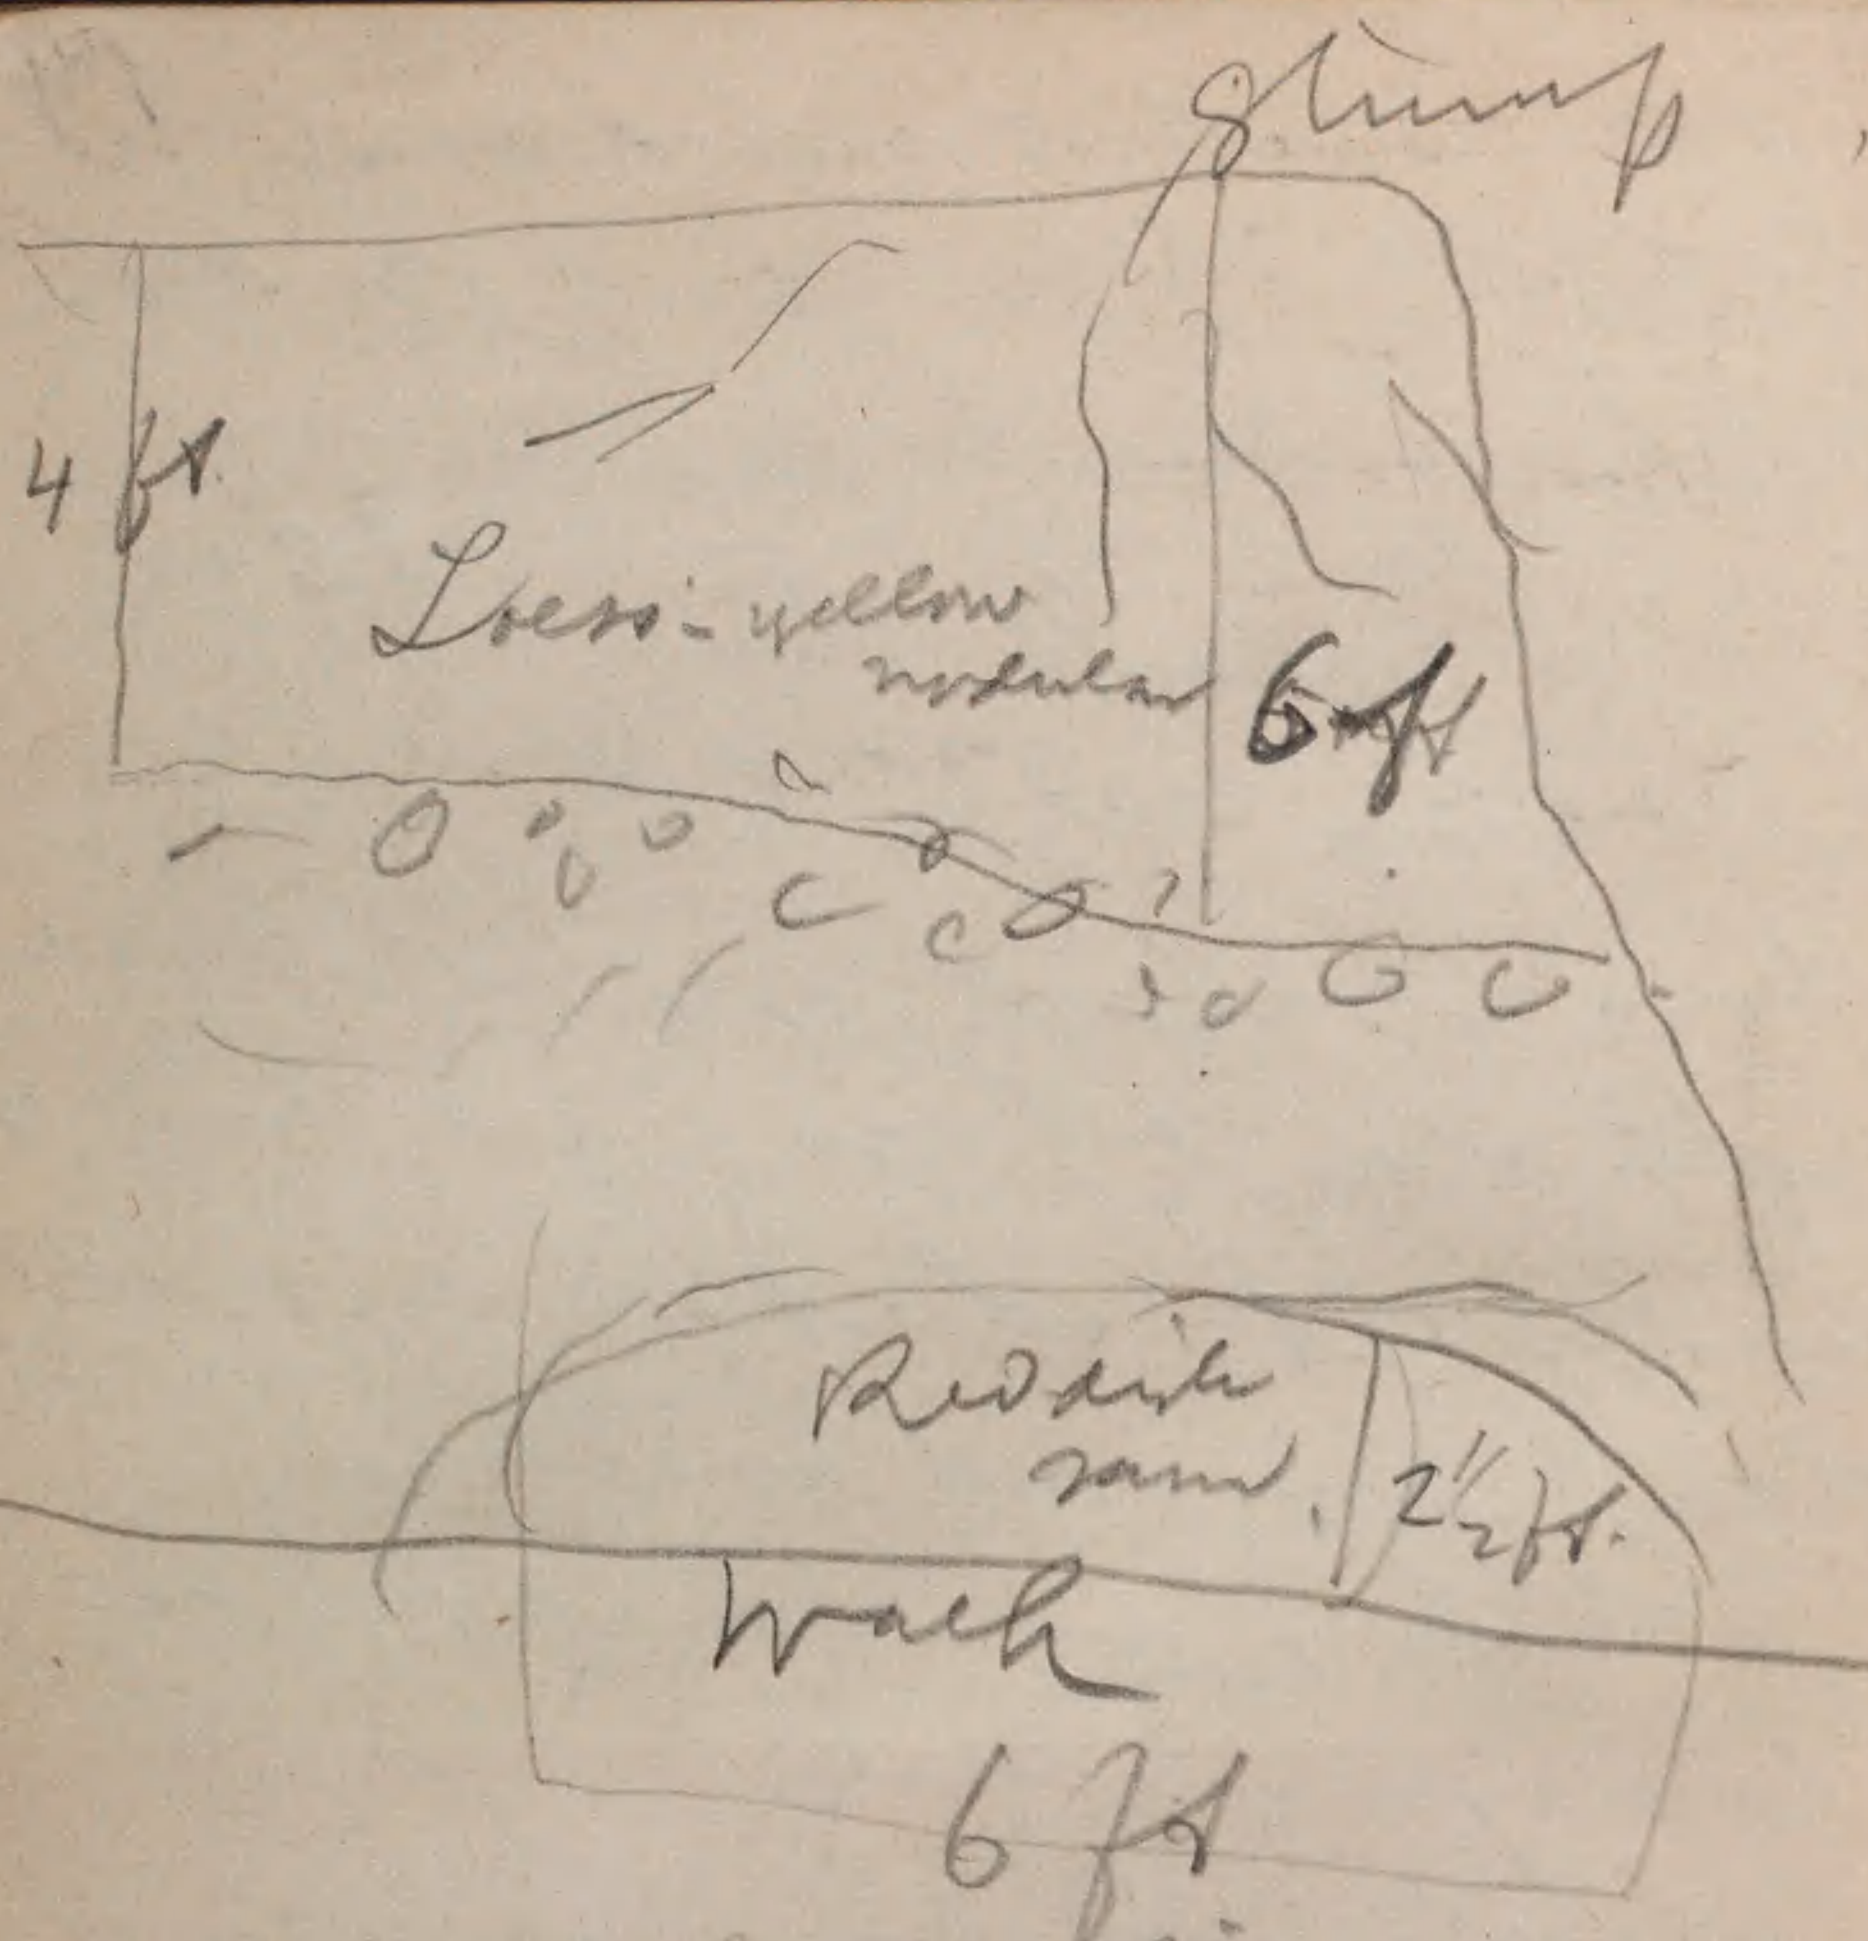 Stump
4 ft.
Loess - yellow
nodular
6 ft
Reddish
sand.
2 1/2 ft.
Wash
6 ft